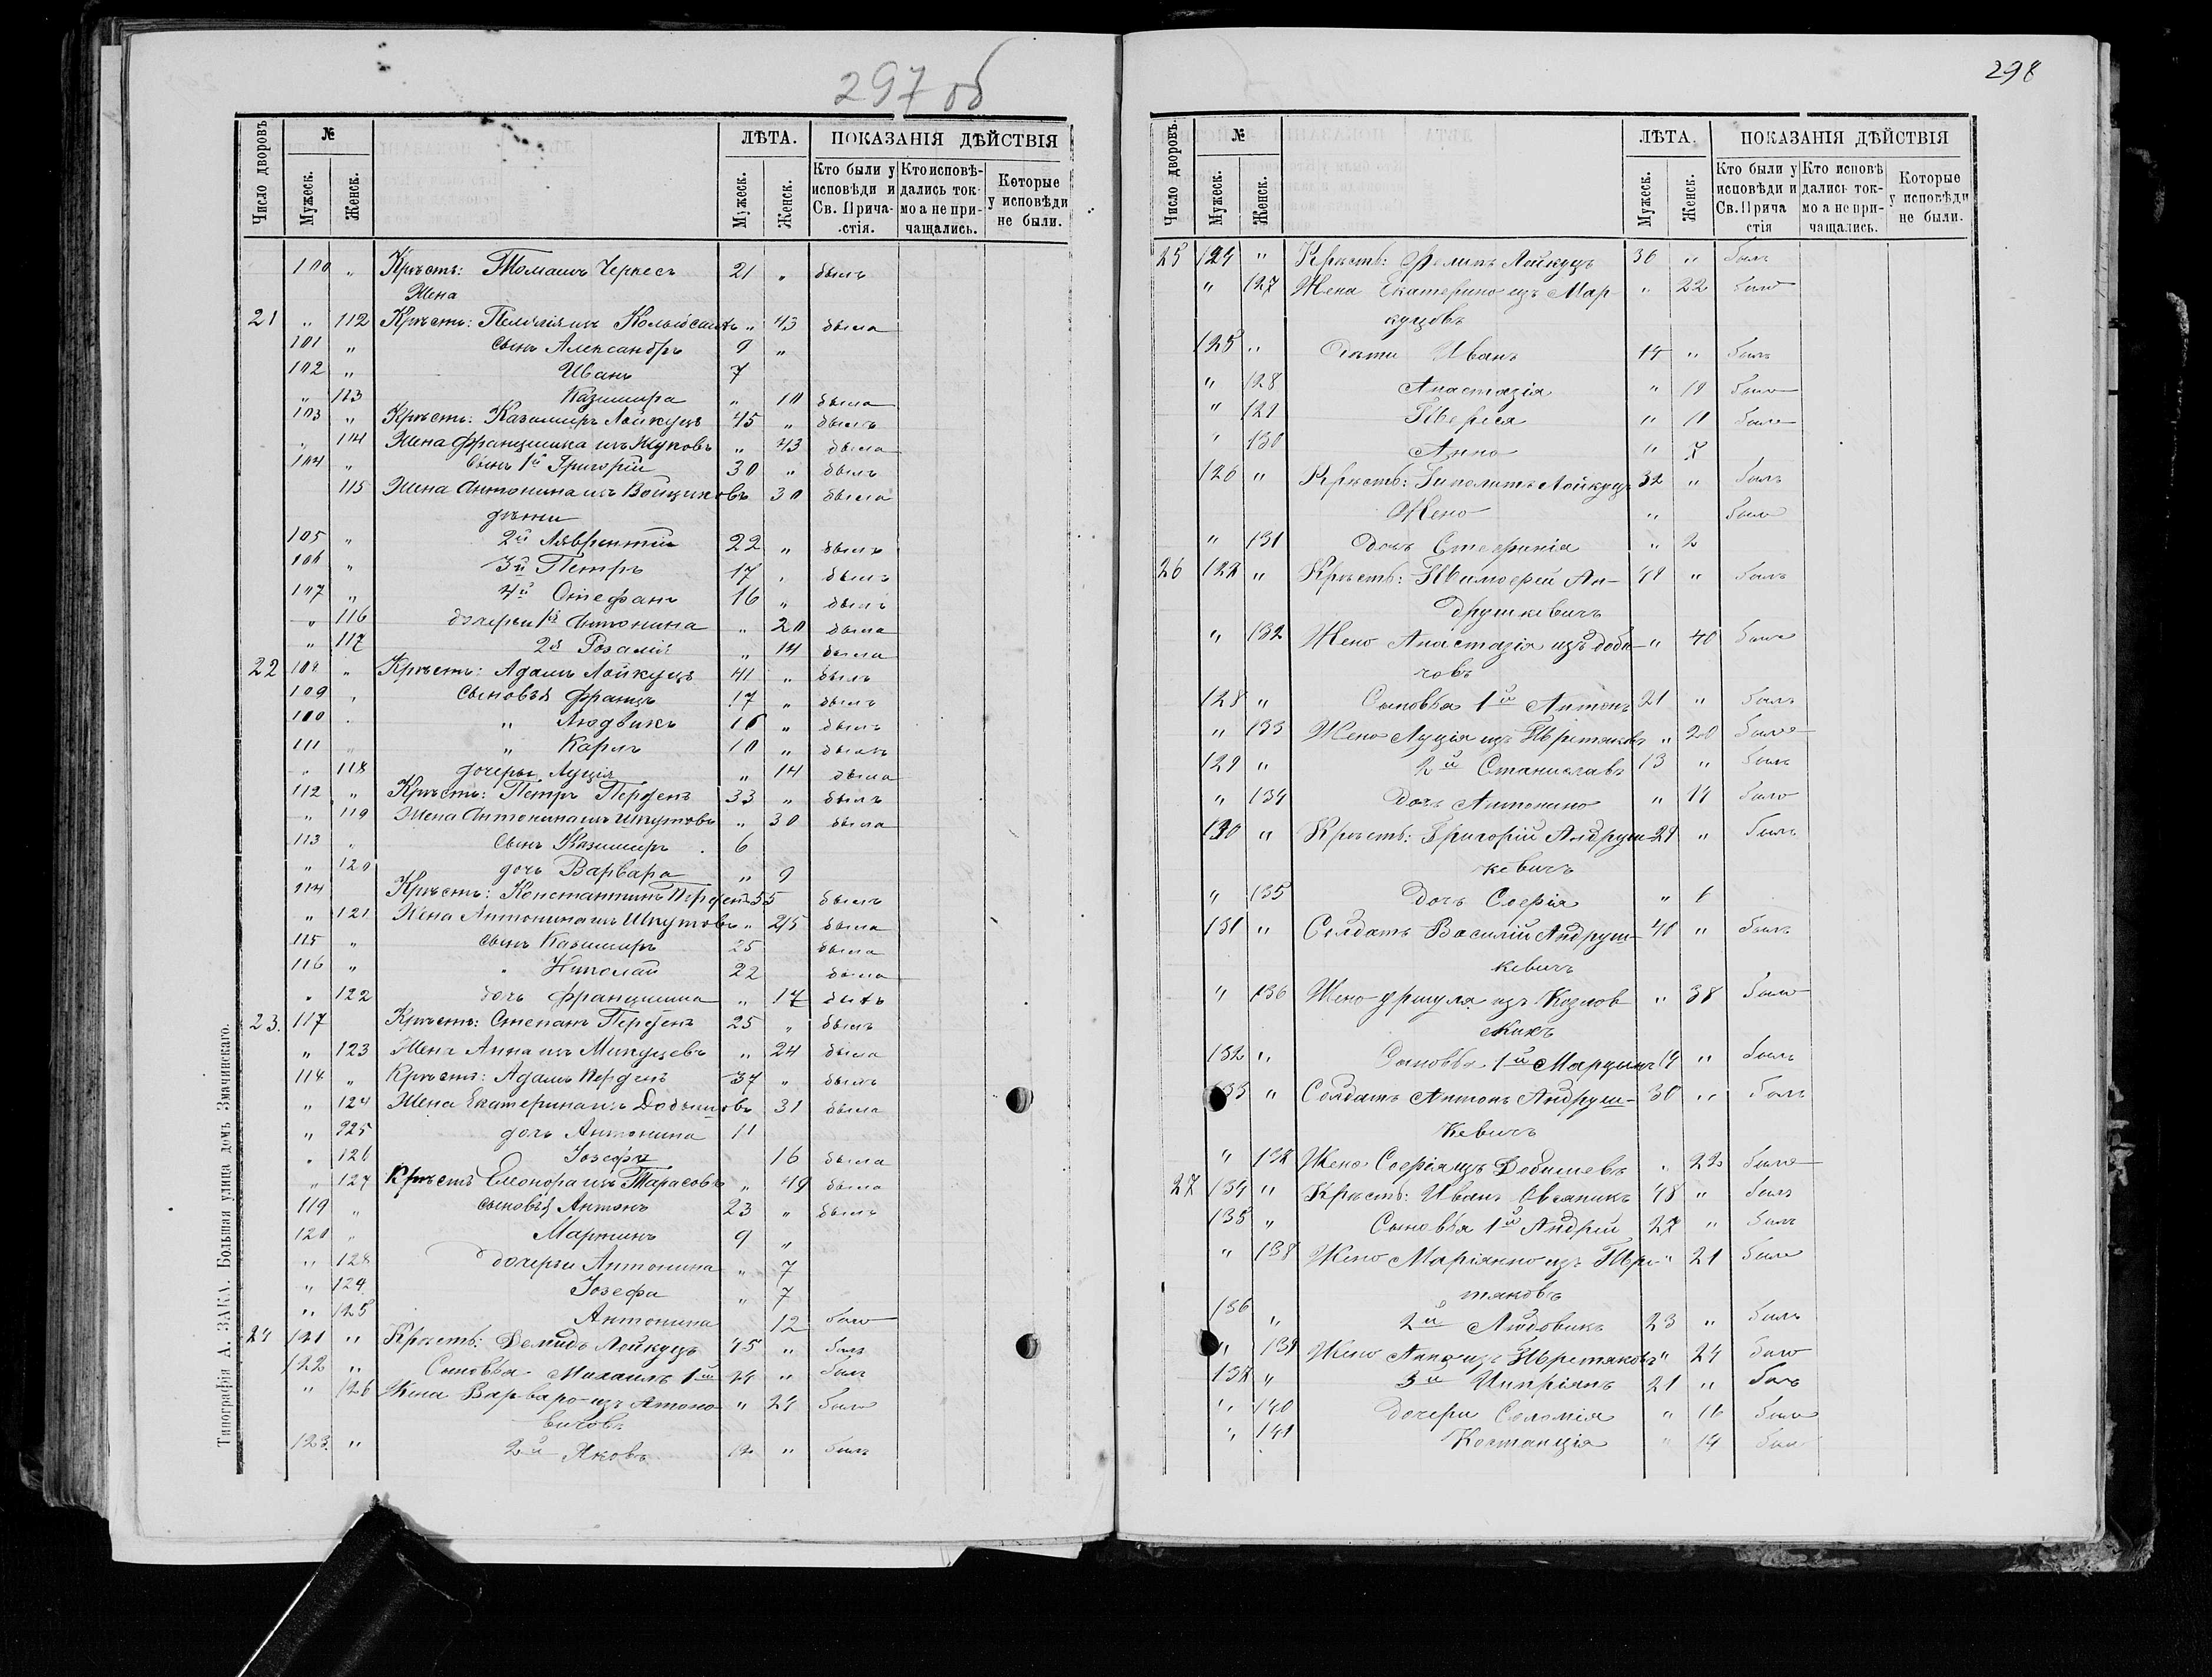 297 об
Число дворовъ.
№
Мужеск.
Женск.
ЛѢТА.
Мужеск.
Женск.
ПОКАЗАНІЯ ДѢЙСТВІЯ
Кто были у исповѣди и Св. Прича-стія.
Кто исповѣ-дались ток-мо а не при-чащались.
Которые у исповѣди не были.
100 „ Крѣстъ: Томашъ Черкесъ 21 „ былъ
Жена
21 „ 112 Крѣстъ: „ 43 была
101 „ сынъ Александръ 9 „
102 „ Иванъ 7
„ 113 Казимира „ 10 была
103 „ Крѣстъ: Казимиръ Лойкуцъ 45 „ былъ
„ 114 Жена Францишка изъ Жуковъ „ 43 была
104 „ сынъ 1й Григорій 30 „ былъ
115 Жена Антонина изъ 30 была
105 „ 2й Лаврентій 22 „ былъ
106 „ 3й Петръ 17 „ былъ
107 „ 4й Стефанъ 16 „ былъ
„ 116 дочерьи 1я Антонина „ 20 была
„ 117 2я Розалія „ 14 была
22 108 „ Крѣстъ: Адамъ Лойкуцъ 41 „ былъ
109 „ сыновья Францъ 17 „ былъ
110 „ Людвикъ 16 „ былъ
111 „ „ Карлъ 10 „ былъ
„ 118 дочерьи Луція „ 14 была
112 „ Крѣстъ: Петръ Перденъ 33 „ былъ
„ 119 Жена Антонина изъ Шпутовъ „ 30 была
113 „ сынъ Казимиръ 6
„ 120 дочь Варвара „ 9
114 Крѣстъ: Константинъ Перденъ 55 былъ
„ 121 Жена Антонина изъ Шпутовъ „ 25 была
115 „ сынъ Казимиръ 25 была
116 „ „ Николай 22 была
„ 122 дочь Францишка „ 17 былъ
23. 117 Крѣстъ: Степанъ Перденъ 25 „ былъ
„ 123 Жена Анна изъ Микуцевъ „ 24 была
118 „ Крѣстъ: Адамъ Перденъ 37 „ былъ
„ 124 Жена Екатерина изъ Добышовъ 31 была
„ 125 дочь Антонина 11
„ 126 Іозефа 16 была
„ 127 Крѣстъ Елеонора изъ Тарасовъ „ 49 была
119 „ сыновья Антонъ 23 „ былъ
120 „ Мартинъ 9 „
„ 128 дочерьи Антонина „ 7
„ 124 Іозефа „ 7
„ 125 Антонина 12 была
24 121 „ Крѣстъ: Демидъ Лойкуцъ 45 „ былъ
122 „ Сыновья Михаилъ 1й 24 „ былъ
„ 126 Жена Варвара изъ Антоно- „ 24 была
вичовъ
123 „ 2й Яковъ 12 „ былъ
Типографія А. ЗАКА. Большая улица домъ Змачинскаго.
298
Число дворовъ.
№
Мужеск.
Женск.
ЛѢТА.
Мужеск.
Женск.
ПОКАЗАНІЯ ДѢЙСТВІЯ
Кто были у исповѣди и Св. Прича стія
Кто исповѣ дались ток-мо а не при-чащались.
Которые у исповѣди не были.
25 124 „ Крѣстъ: Филипъ Лойкуцъ 36 „ былъ
„ 127 Жена Екатерина изъ Мар- „ 22 была
куцовъ
125 „ Дѣти Иванъ 14 „ былъ
„ 128 Анастазія „ 19 была
„ 129 Тереса „ 11 была
„ 130 Анна „ 7
126 „ Крѣстъ: Иполитъ Лойкуцъ 32 „ былъ
Жена „ была
„ 131 Дочь Стефанія „ 2
26 127 „ Крѣстъ: Тимофей Ан- 49 „ былъ
друшкевичъ
„ 132 Жена Анастазія изъ Доби- „ 40 была
човъ
128 „ Сыновья 1й Антонъ 21 „ былъ
„ 133 Жена Луція изъ Третяковъ „ 20 была
129 „ 2й Станиславъ 13 „ былъ
„ 134 Дочь Антонина „ 14 была
130 „ Крѣстъ: Григорій Андруш- 29 „ былъ
кевичъ
„ 135 Дочь Софія „ 1
131 „ Солдатъ Василій Андруш- 40 „ былъ
кевичъ
„ 136 Жена Уршуля изъ Козлов- „ 38 была
скихъ
132 „ Сыновья 1й Марцинъ 14 „ былъ
133 „ Солдатъ Антонъ Андруш- 30 „ былъ
кевичъ
„ 137 Жена Софія изъ Добишевъ „ 22 была
27 134 „ Крѣстъ: Иванъ Овсяникъ 48 „ былъ
135 „ Сыновья 1й Андрій 27 „ былъ
„ 138 Жена Маріянна изъ Тре- „ 21 была
тяковъ
136 „ 2й Людовикъ 23 „ былъ
„ 139 Жена Анна изъ Третяковъ „ 24 была
137 „ 3й Кипріянъ 21 „ былъ
„ 140 Дочери Соломія „ 16 была
„ 141 Костанція „ 14 была